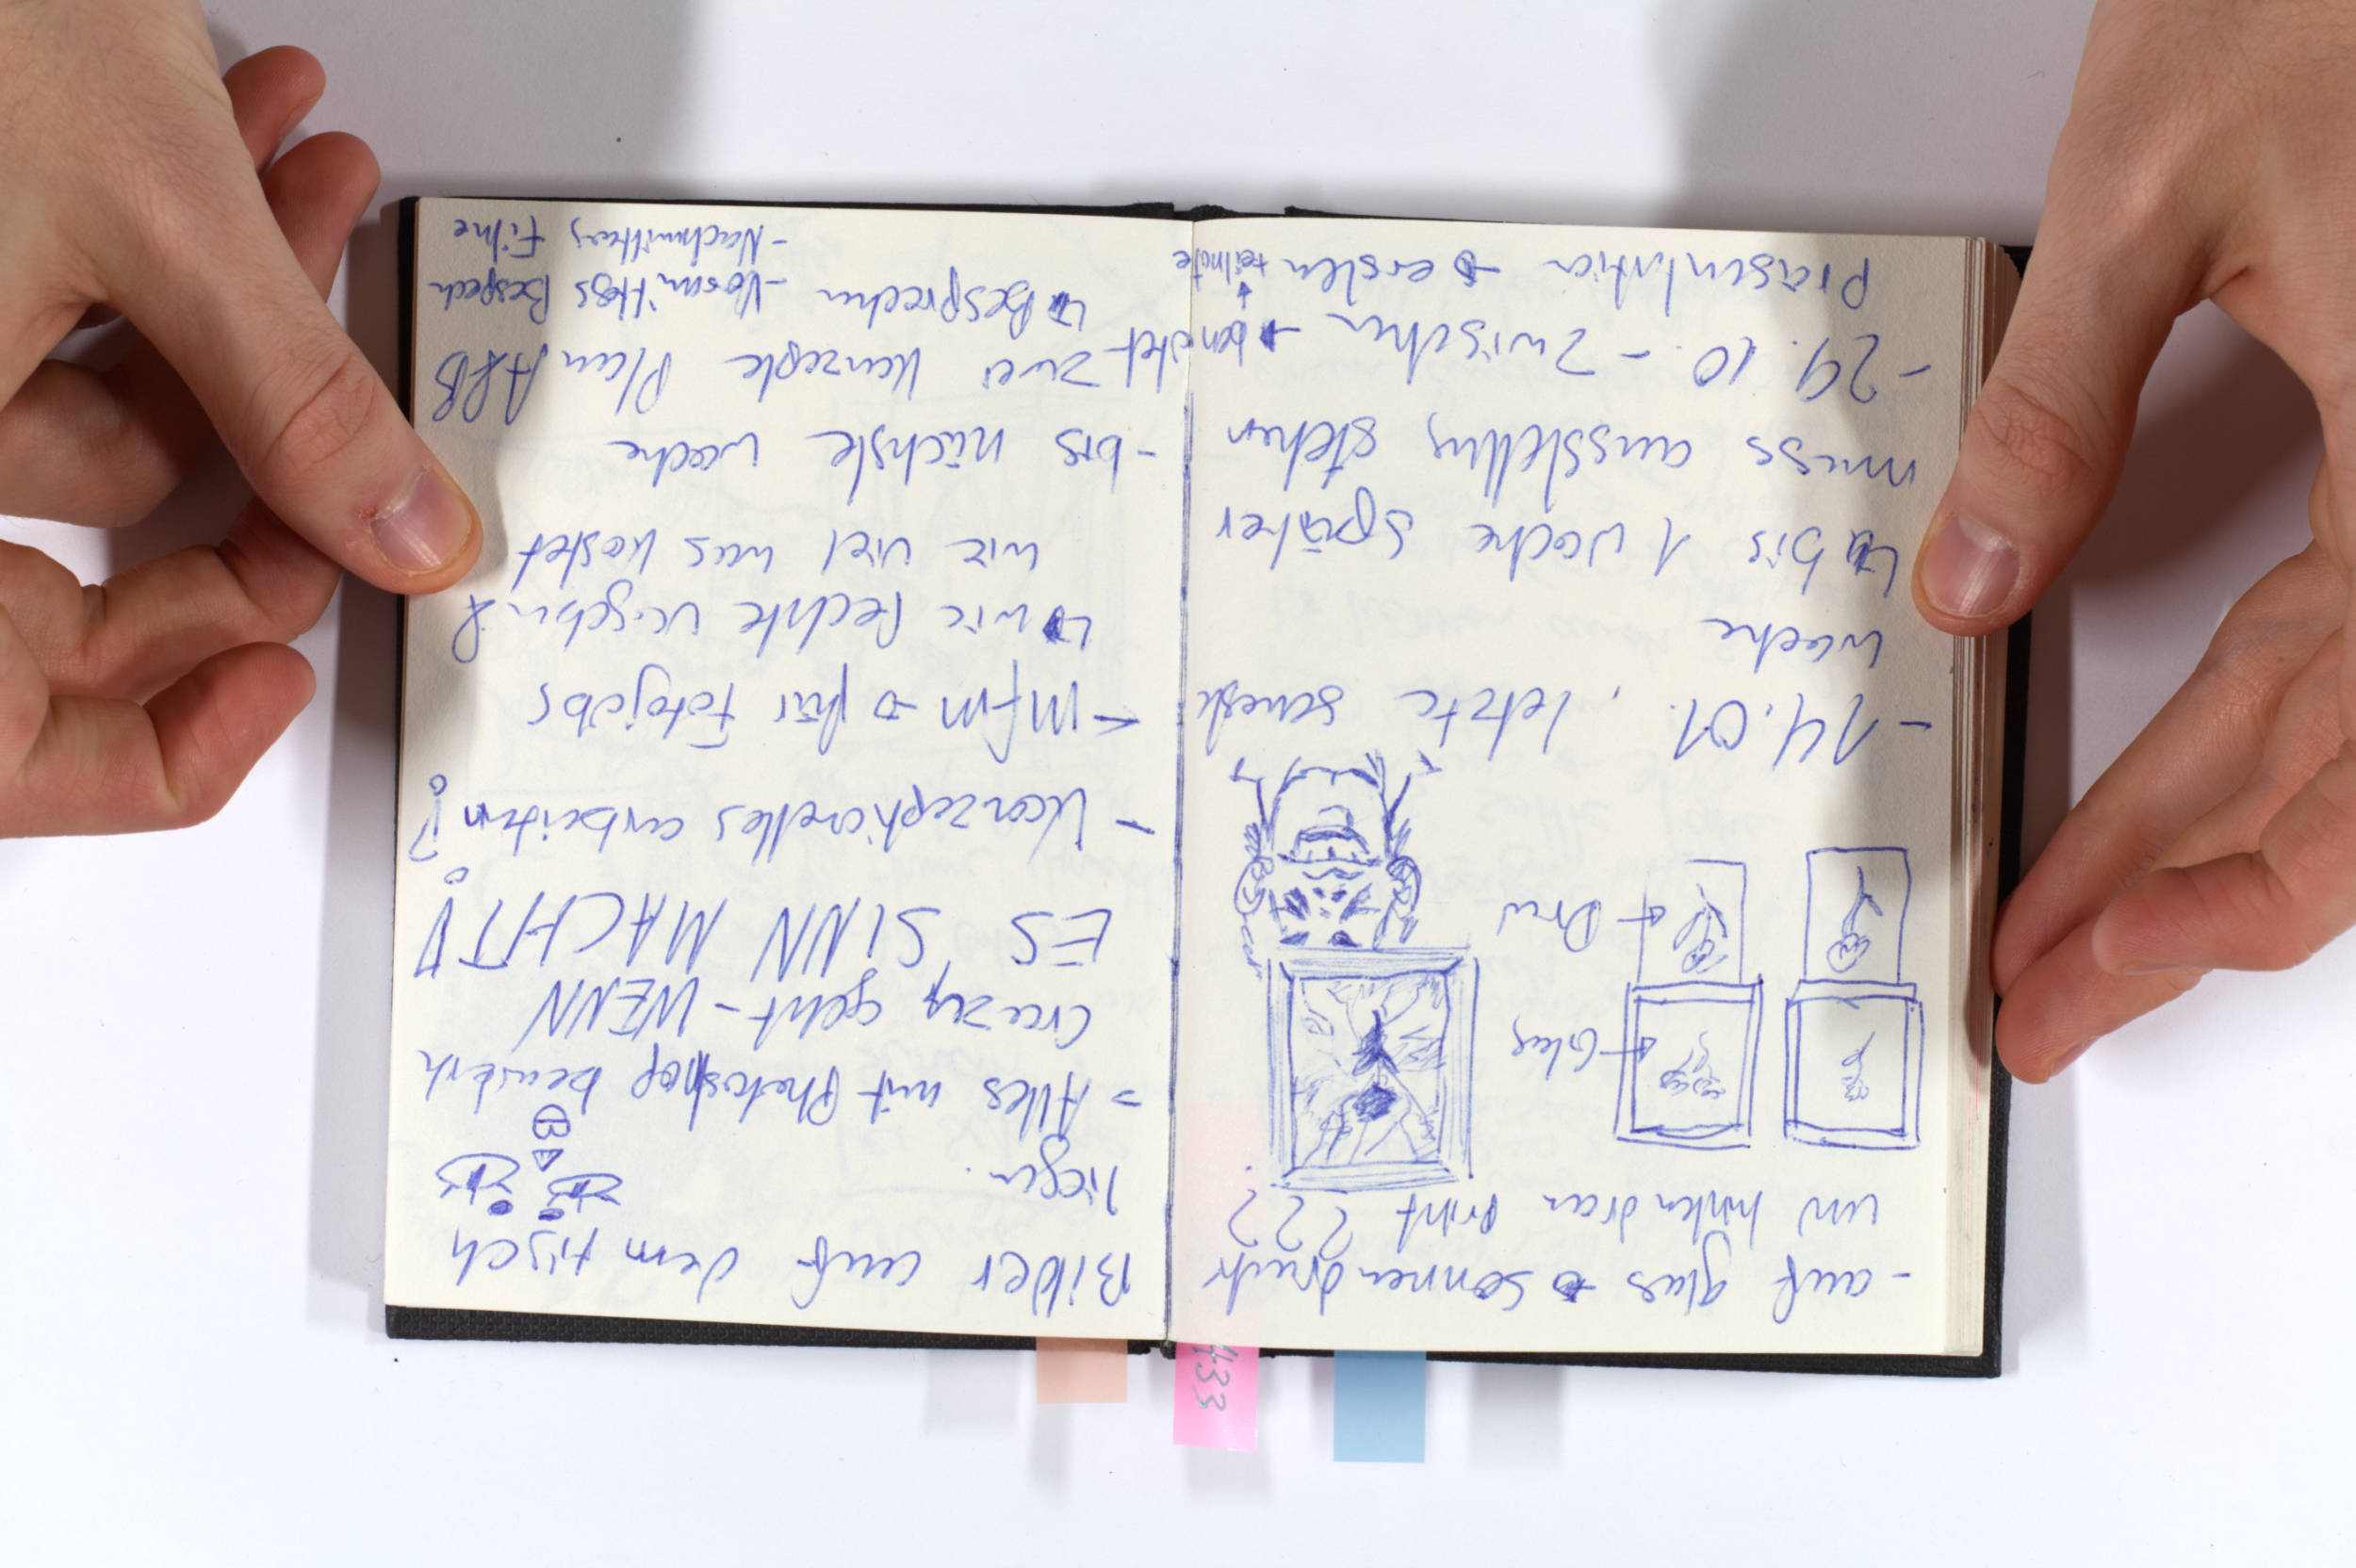 -auf glas → sonnendruck
un hinten dran print ???
Glas
Dru
-14.01. , letzte semest
woche
↳ bis 1 woche später
muss ausstellung stehen
-29.10. - zwischen → benotet
Präsentation → ersten teilnote
Bilder auf dem tisch
liegen.
= Alles mit Photoshop
Creazy geht - WENN
ES SINN MACHT!
- Konzeptionelles arbeiten?!
- MFM → für Fotojobs
↳ wie Rechte vergeben &
wie viel was kostet
- bis nächste woche
- zwei Konzepte Plan A&B
↳ Besprechen - Vormittags Besprech
- Nachmittag Filme